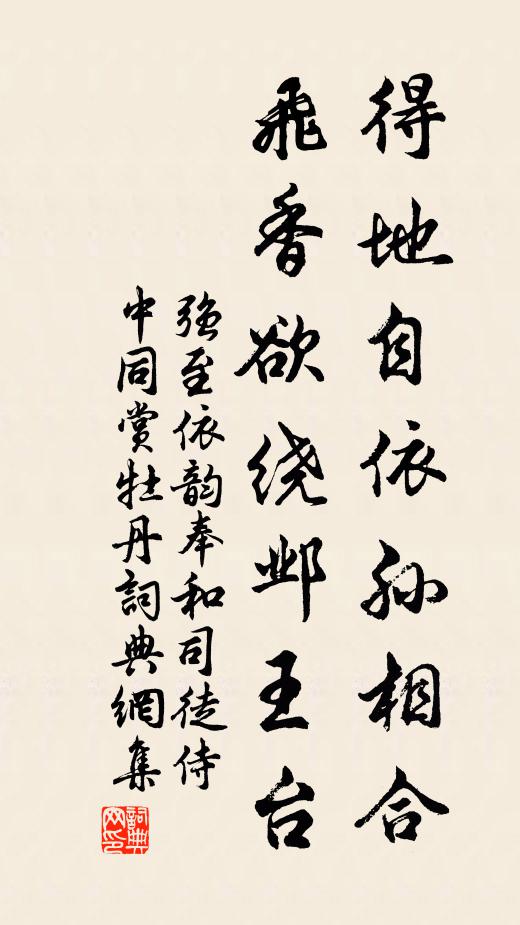 得地自依孙相合
飛香欲绕邺王台
强至依韵奉和司徒侍
中同赏牡丹詞典網集
詞典
网印